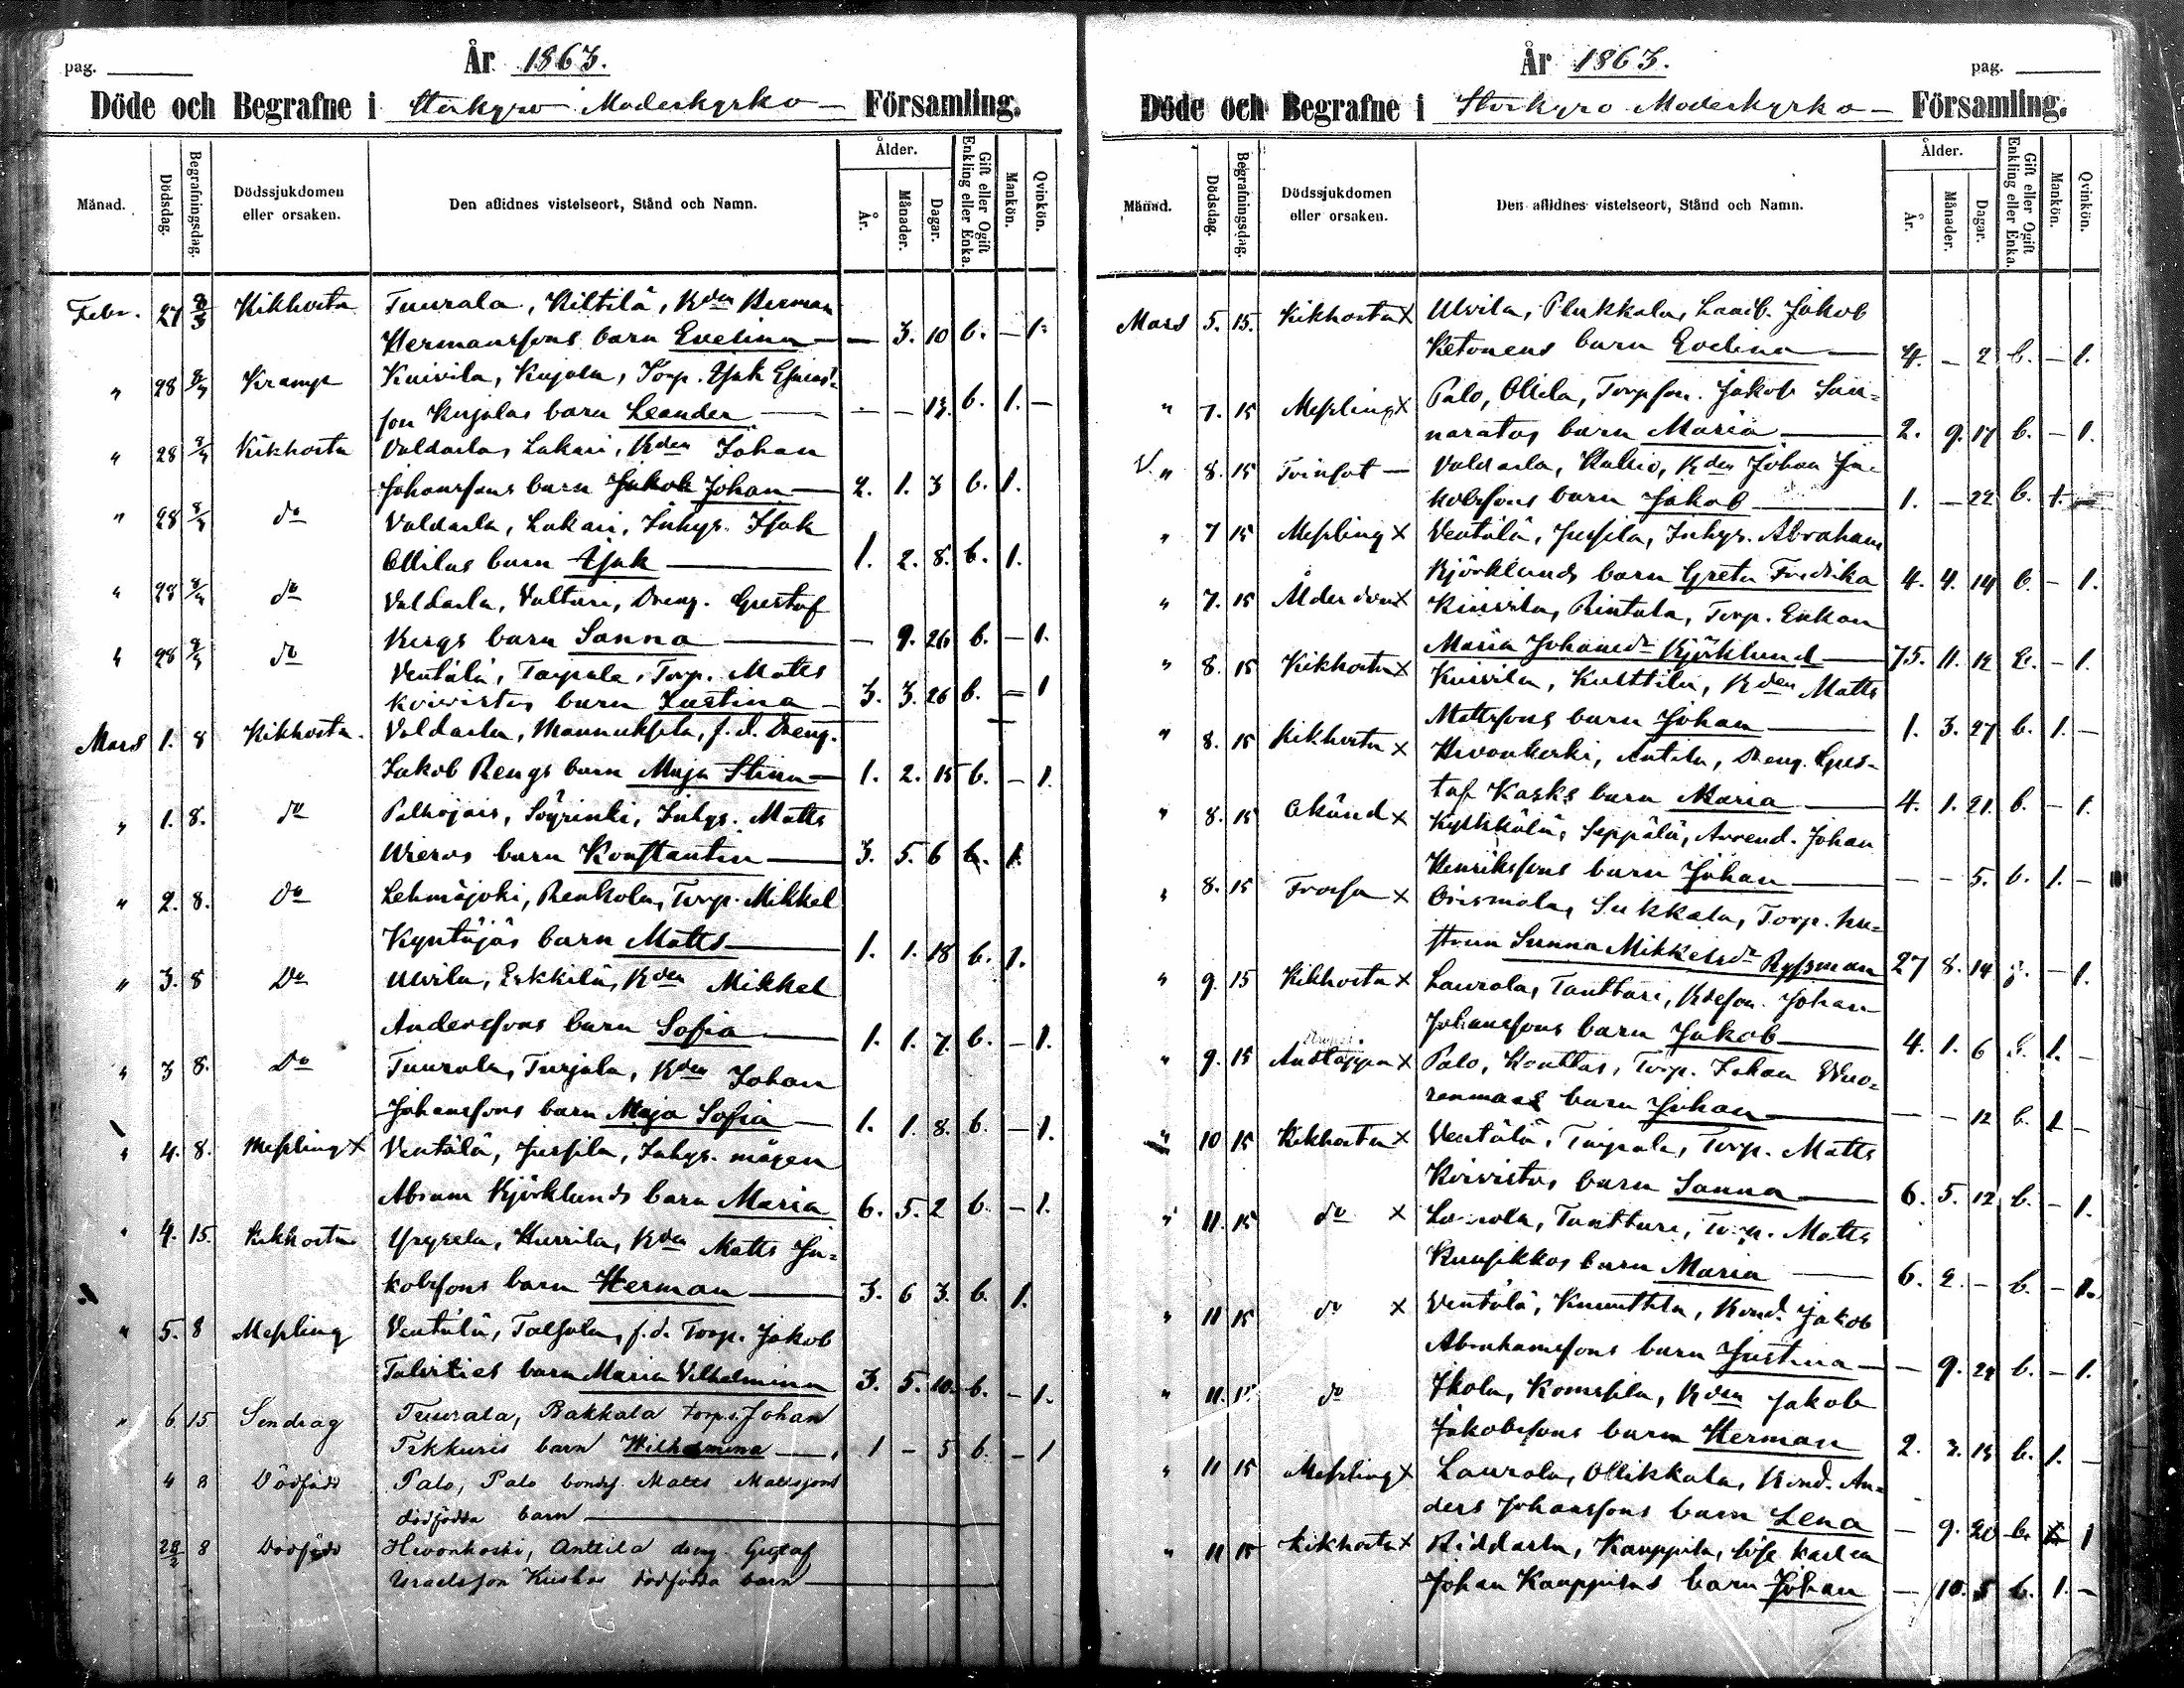 pag.
År 1863.
Döde och Begrafne i Storkyro Moderkyrko- Församling.
Månad. Dödsdag. Begrafningsdag. Dödssjukdomen eller orsaken. Den aflidnes vistelseort, Stånd och Namn. Ålder. År. Månader. Dagar. Gift eller Ogift Enkling eller Enka. Mankön. Qvinkön.
Febr. 27 8/3 Kikhosta Tuurala, Kiltilä, Bden Herman
Hermanssons barn Evelina — — 3. 10 b. — 1.
" 28 8/3 Kramp Kuivila, Kujala, Torp. Isak
son Kujalas barn Leander — — — 13. b. 1. —
" 28 8/3 Kikhosta Valdarla, Lakari, Bden Johan
Johanssons barn Jakob Johan — 2. 1. 3 b. 1.
" 28 8/3 do Valdarla, Lakari, Inhys. Isak
Ollilas barn Isak — 1. 2. 8. b. 1.
" 28 8/3 do Valdarla, Valtari, Dreng. Gustaf
Bergs barn Sanna — — 9. 26 b. — 1.
" 28 8/3 do Ventälä, Taipale, Torp. Matts
Koivistos barn Justina — 3. 3. 26 b. — 1
Mars 1. 8 Kikhosta. Valdarla, Mannuksela, f.d. Dreng.
Jakob Rengs barn Maja Stina — 1. 2. 15 b. — 1.
" 1. 8. do Palhojais, Söyrinki, Inhys. Matts
barn Konstantin — 3. 5. 6 b. 1.
" 2. 8. Do Lehmäjoki, Renkola, Torp. Mikkel
Kyntäjäs barn Matts — 1. 1. 18 b. 1.
" 3. 8 Do Ulvila, Erkkilä, Bden Mikkel
Anderssons barn Sofia — 1. 1. 7. b. — 1.
" 3 8. Do Tuurala, Turjala, Bden Johan
Johanssons barn Maja Sofia — 1. 1. 8. b. — 1.
" 4. 8. Messling x Ventälä, Jussila, Inhys. mågen
Abram Björklunds barn Maria 6. 5. 2 b. — 1.
" 4. 15. Kikhosta Yryselä, Hurrila, Bden Matts Ja=
kobssons barn Herman — 3. 6 3. b. 1.
" 5. 8 Messling Ventälä, Talsola, f.d. Torp. Jakob
Talvities barn Maria Vilhelmina 3. 5. 10. b. — 1.
" 6 15 Sendrag Tuurala, Bakkala torp.s. Johan
Tekkuris barn Wilhelmina — 1 — 5 b. — 1
4 8 Dödfödd Palo, Palo bondes. Matts Mattssons
dödfödda barn —
28/2 8 Dödfödd Hevonkoski, Anttila dreng Gustaf
Israelsson Kuskas dödfödda barn —
År 1863.
pag.
Döde och Begrafne i Storkyro Moderkyrko- Församling.
Månad. Dödsdag. Begrafningsdag. Dödssjukdomen eller orsaken. Den aflidnes vistelseort, Stånd och Namn. Ålder. År. Månader. Dagar. Gift eller Ogift Enkling eller Enka. Mankön. Qvinkön.
Mars 5. 15. Kikhosta x Ulvila, Plukkala, Jakob
Ketonens barn Evelina — 4. — 2 b. — 1.
" 7. 15 Messling x Palo, Ollila, Torpson. Jakob Sau=
naratas barn Maria — 2. 9. 17 b. — 1.
V. " 8. 15 Tvinsot — Valdarla, Kalsio, Bden Johan Ja-
kobssons barn Jakob — 1. — 22 b. 1. —
" 7 15 Messling x Ventälä, Jussila, Inhys. Abraham
Björklunds barn Greta Fredrika 4. 4. 14 b. — 1.
" 7. 15 Ålderdom x Kuivila, Rintala, Torp. Enkan
Maria Johansdr Björklund — 75. 11. 12 E. — 1.
" 8. 15 Kikhosta x Kuivila, Kulttila, Bden Matts
Mattssons barn Johan — 1. 3. 27 b. 1. —
" 8. 15 Kikhosta x Hevonkoski, Antila, Dreng. Gus-
taf Kasks barn Maria — 4. 1. 21. b. — 1.
" 8. 15 Okänd x Kylkkälä, Seppälä, Arrend. Johan
Henrikssons barn Johan — — — 5. b. 1. —
" 8. 15 Frossa x Orismala, Sukkala, Torp. hu=
strun Sanna Mikkelsdr Ryssman 27 8. 14 g. — 1.
" 9. 15 Kikhosta x Laurola, Tanttari, Bdeson. Johan
Johanssons barn Jakob — 4. 1. 6 b. 1. —
" 9. 15 Andtäppa x Palo, Konttas, Torp. Johan Wuo=
renmaas barn Johan — — — 12 b. 1 —
" 10 15 Kikhosta x Ventälä, Taipale, Torp. Matts
Koivistos barn Sanna — 6. 5. 12 b. — 1.
" 11. 15 do x Laurola, Tanttari, Torp. Matts
Kuusikkos barn Maria — 6. 2. — b. — 1.
" 11 15 do x Ventälä, Knuuttila, Bond. Jakob
Abrahamssons barn Justina — — 9. 24 b. — 1.
" 11. 15. do Ikola, Komsila, Bden Jakob
Jakobssons barn Herman 2. 3. 13 b. 1. —
" 11 15 Messling x Laurola, Ollikkala, Bond. An=
ders Johanssons barn Lena — 9. 20 b. 1
" 11 15 Kikhosta x Riddarla, Kauppila, lösa karlen
Johan Kauppilas barn Johan — 10. 5 b. 1. —